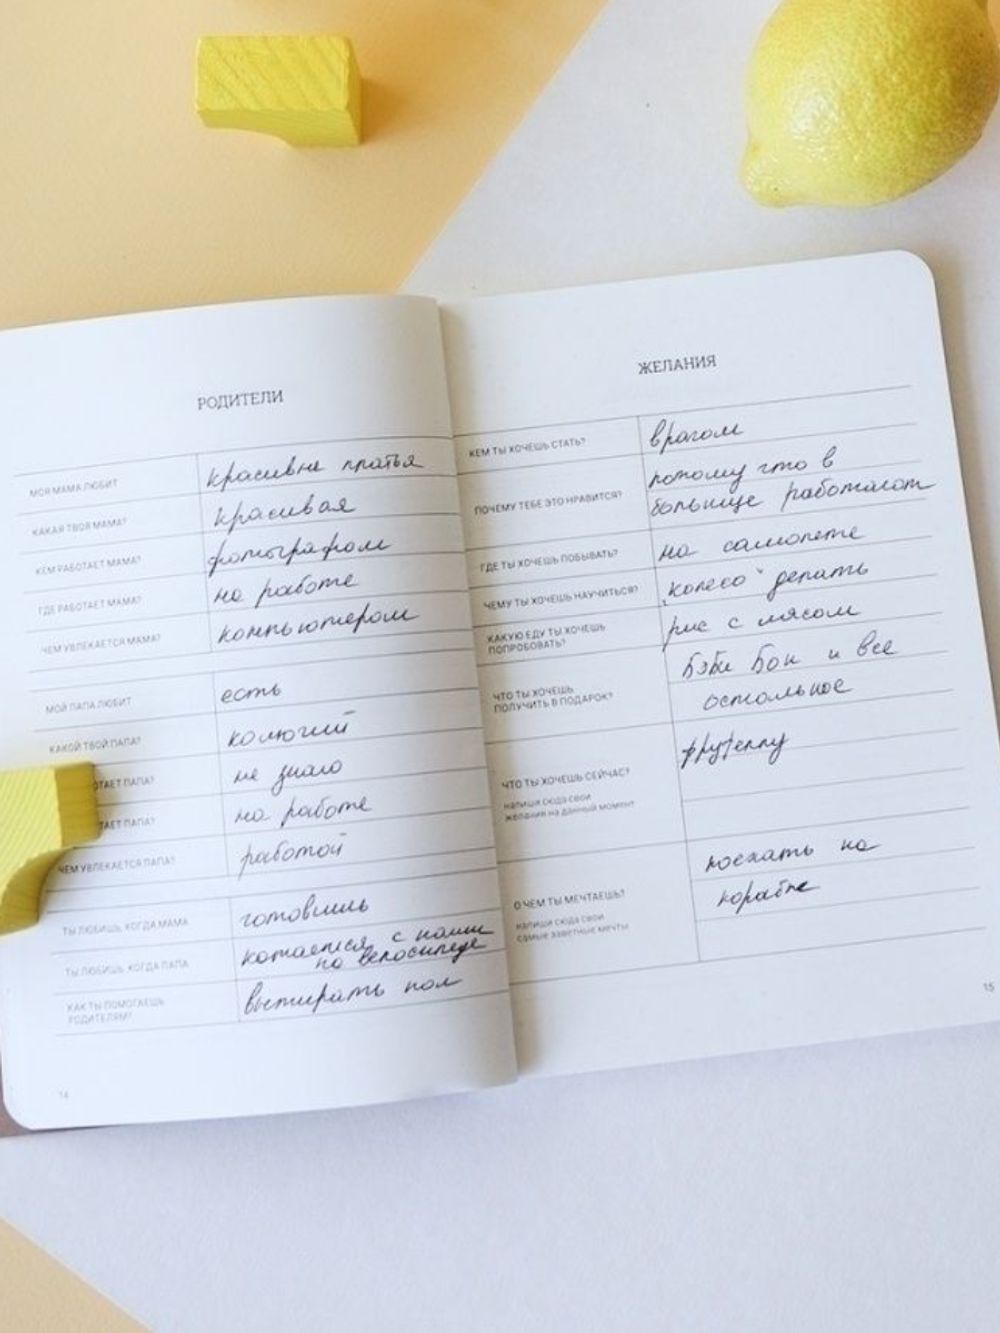 РОДИТЕЛИ
МОЯ МАМА ЛЮБИТ красивые платья
КАКАЯ ТВОЯ МАМА? красивая
КЕМ РАБОТАЕТ МАМА? фотографом
ГДЕ РАБОТАЕТ МАМА? на работе
ЧЕМ УВЛЕКАЕТСЯ МАМА? компьютером
МОЙ ПАПА ЛЮБИТ есть
КАКОЙ ТВОЙ ПАПА? колючий
ОТАЕТ ПАПА? не знаю
ТАЕТ ПАПА? на работе
ЧЕМ УВЛЕКАЕТСЯ ПАПА? работой
ТЫ ЛЮБИШЬ, КОГДА МАМА готовишь
ТЫ ЛЮБИШЬ, КОГДА ПАПА катаемся с нами
на велосипеде
КАК ТЫ ПОМОГАЕШЬ
РОДИТЕЛЯМ? вытирать пол
14
ЖЕЛАНИЯ
КЕМ ТЫ ХОЧЕШЬ СТАТЬ? врагом
ПОЧЕМУ ТЕБЕ ЭТО НРАВИТСЯ? потому что в
больнице работают
ГДЕ ТЫ ХОЧЕШЬ ПОБЫВАТЬ? на самолете
ЧЕМУ ТЫ ХОЧЕШЬ НАУЧИТЬСЯ? "колесо" делать
КАКУЮ ЕДУ ТЫ ХОЧЕШЬ
ПОПРОБОВАТЬ? рис с мясом
ЧТО ТЫ ХОЧЕШЬ
ПОЛУЧИТЬ В ПОДАРОК? Бэби Бон и все
остальное
ЧТО ТЫ ХОЧЕШЬ СЕЙЧАС? фрутеллу
напиши сюда свои
желания на данный момент
О ЧЕМ ТЫ МЕЧТАЕШЬ? поехать на
корабле
напиши сюда свои
самые заветные мечты
15